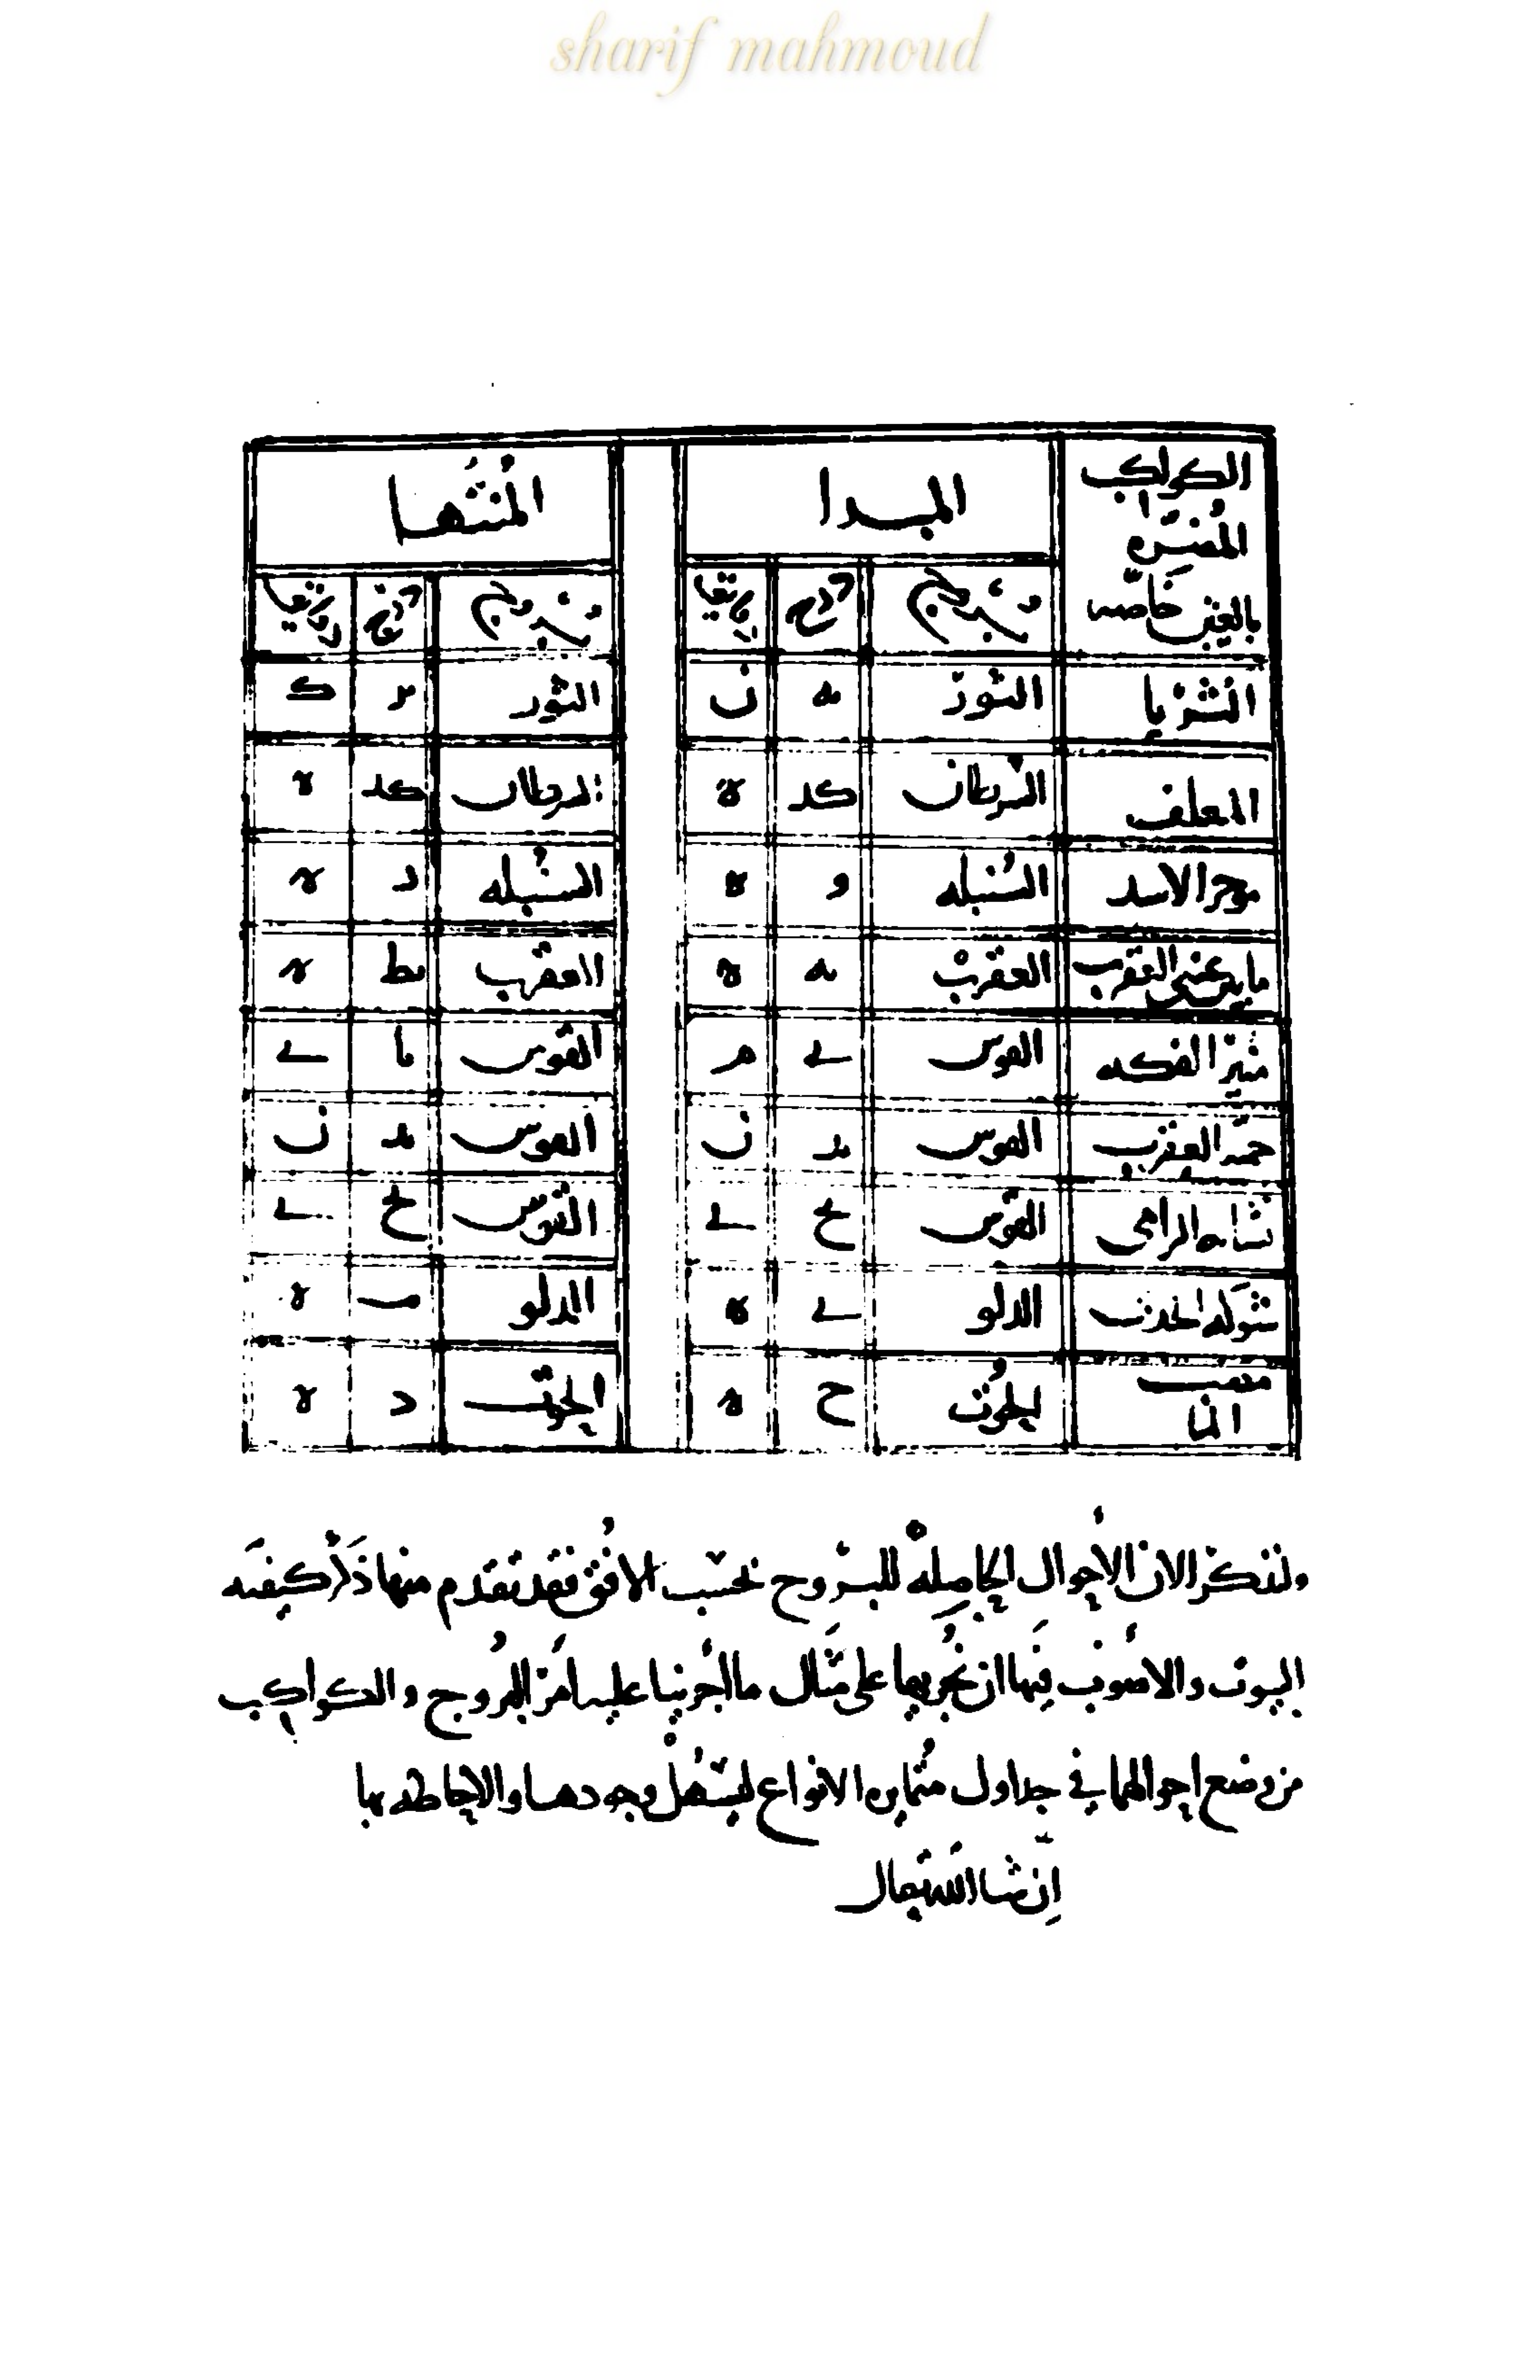 sharif mahmoud
الكواكب المضرة بالعين خاصه | المبدا | المنتها
الثريا | الثور | ىه | ن | الثور | ك
المعلف | السرطان | كد | ه | السرطان | كد | ه
الاسد | السنبله | و | ه | السنبله | د | ه
العقرب | العقرب | ىه | ه | العقرب | ىط | ه
الفكه | القوس | ى | م | القوس | يا | ى
حمة العقرب | القوس | ىد | ن | القوس | ىد | ن
نشابه الرامى | القوس | كح | ى | القوس | كح | ى
شوكه الجدى | الدلو | ى | ه | الدلو | ه
مصب الما | الحوت | ح | ه | الحوت | د | ه
ولنذكر الان الأحوال الحاصله للبروج بحسب الافق فقد تقدم منها ذكر كيفيه
البيوت والاصوب فيها ان نجريها على مثال ما اجرينا عليه امر البروج والكواكب
من وضع احوالهما في جداول متمايزه الانواع ليسهل وجودها والاحاطه بها
إن شا الله تعالى